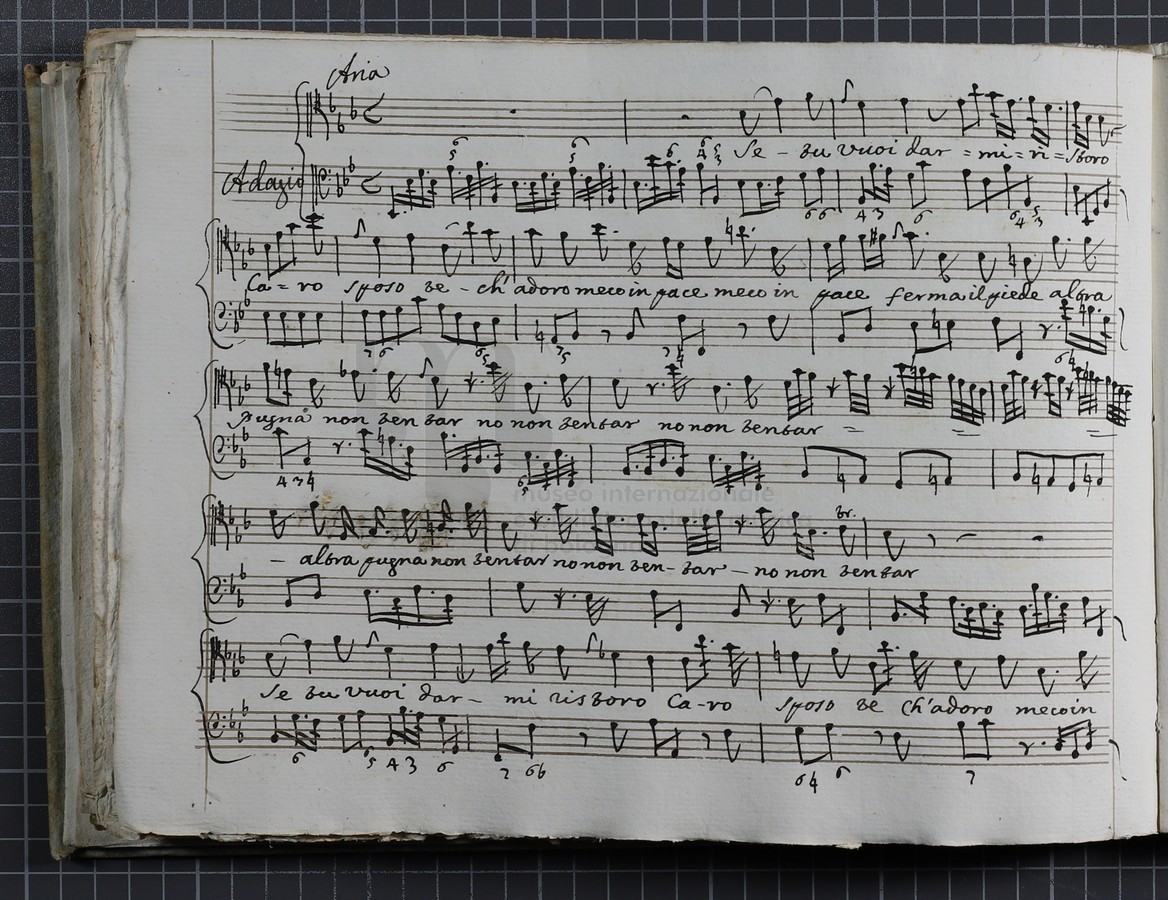 Aria
Se - tu vuoi dar = mi = ri = storo
Adagio
Ca = ro sposo te - ch'adoro meco in pace meco in pace ferma il piede altra
pugna non tentar no non tentar no non tentar =
- altra pugna non tentar no non ten - tar - no non tentar
Se tu vuoi dar - mi ristoro Ca - ro sposo te ch'adoro meco in
museo internazionale